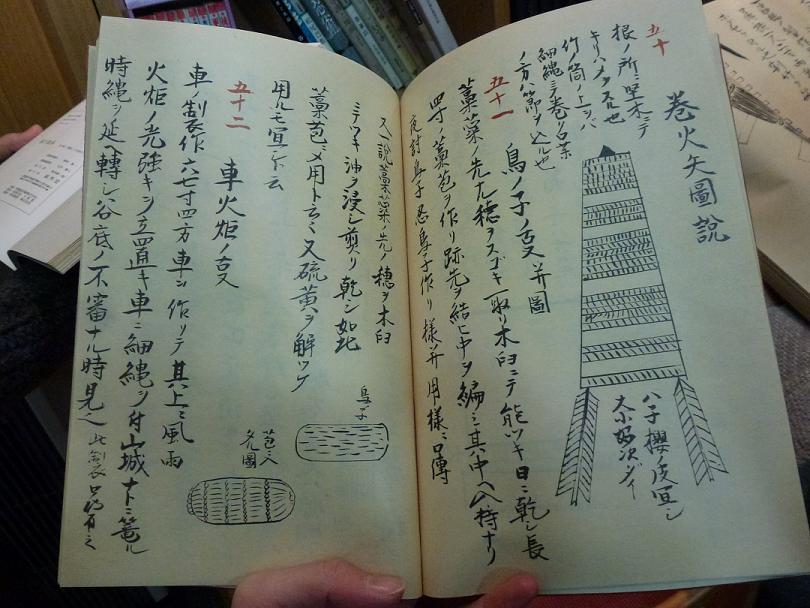 五十
巻火矢圖説
根ノ所ニ堅木ニテ
キリハメヲスル也
竹ノ筒ノ上ハ
細縄ニテ巻ク
ノ方ハ節ヲ込ル也
ハ子櫻ノ皮宜シ
大小好次ダイ
五十一
鳥ノ子ノ㕝并圖
藁蘂ノ先ナル穂ヲスゴキ取リ木臼ニテ能ツキ日ニ乾シ長
四寸ノ藁苞ヲ作リ跡先ヲ結ヒ中ヲ編ミ其中ヘ入持ナリ
夜討鳥子忍鳥子作リ様并用様ニ口傳
又説藁蘂ノ先ノ穂ヲ木臼
ミテツキ油ヲ浸シ煎リ乾シ如此
藁苞ニメ用ト云々又硫黄ヲ解ツケ
用ルモ宜シト云
鳥子
苞ニ入
タル圖
五十二
車火炬ノ㕝
車ノ制作六七寸四方車ニ作リテ其上ニ風雨
火炬ノ光強キヲ立直キ車ニ細縄ヲ付山城ナトニ篭ル
時縄ヲ延ヘ轉シ谷底ノ不審ナル時見ル
此制表口傳有之